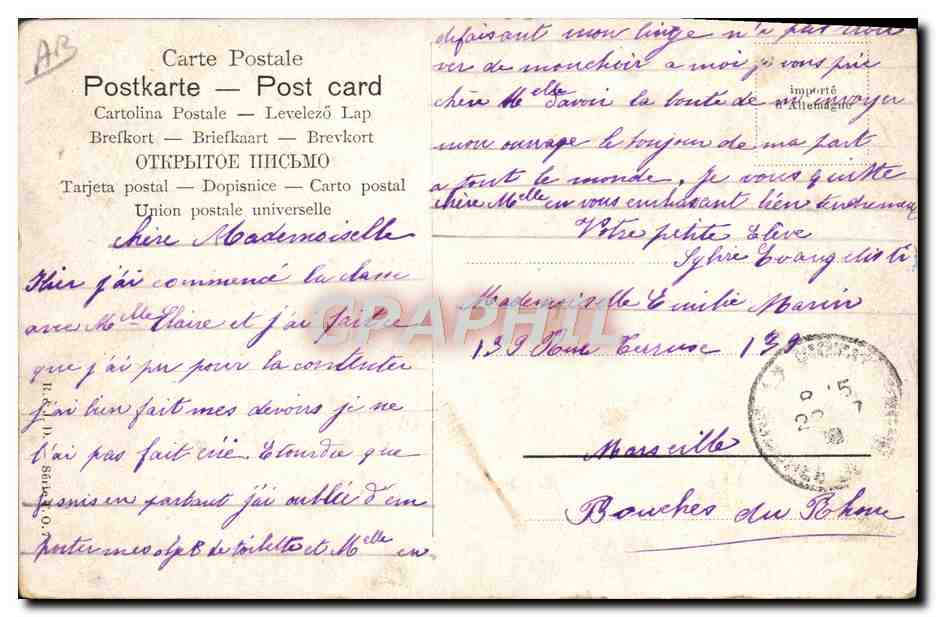 AB
Carte Postale
Postkarte — Post card
Cartolina Postale — Levelező Lap
Brefkort — Briefkaart — Brevkort
ОТКРЫТОЕ ПИСЬМО
Tarjeta postal — Dopisnice — Carto postal
Union postale universelle
chère Mademoiselle
Hier j'ai commencé la classe
avec Mlle Claire et j'ai fait ce
que j'ai pu pour la contenter
j'ai bien fait mes devoirs je ne
l'ai pas fait crié. Etourdie que
je suis en partant j'ai oublié d'em
porter mes de toilette et Mlle en
défaisant mon linge n'a pas trou
ver de mouchoir a moi je vous prie
chère Mlle d'avoir la bonté de m'envoyer
mon ouvrage le bonjour de ma part
a tout le monde. Je vous quitte
chère Mlle en vous embrassant bien tendrement
Votre petite Elève
Evangelisti
importé
d'Allemagne
Mademoiselle Emilie Marin
139 Rue 139
Marseille
Bouches du Rhone
CPAPHIL
Série